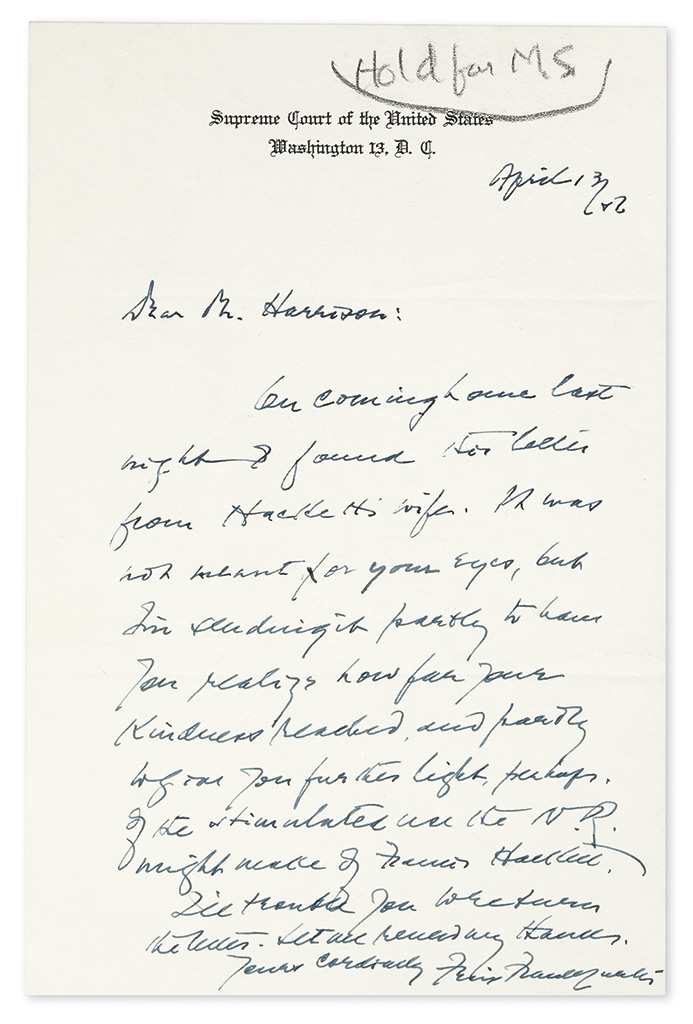 Hold for MS
Supreme Court of the United States
Washington 13, D. C.
April 13/
Dear Mr. Harrison:
On coming home last
night I found this letter
from Hackett's wife. It was
not meant for your eyes, but
I'm sending it partly to have
you realize how far your
kindness reached, and partly
to give you further light, perhaps,
of the stimulated use the N.R.
might make of Francis Hackett.
I'll trouble you to return
the letter. Let me renew my thanks.
Yours cordially Felix Frankfurter